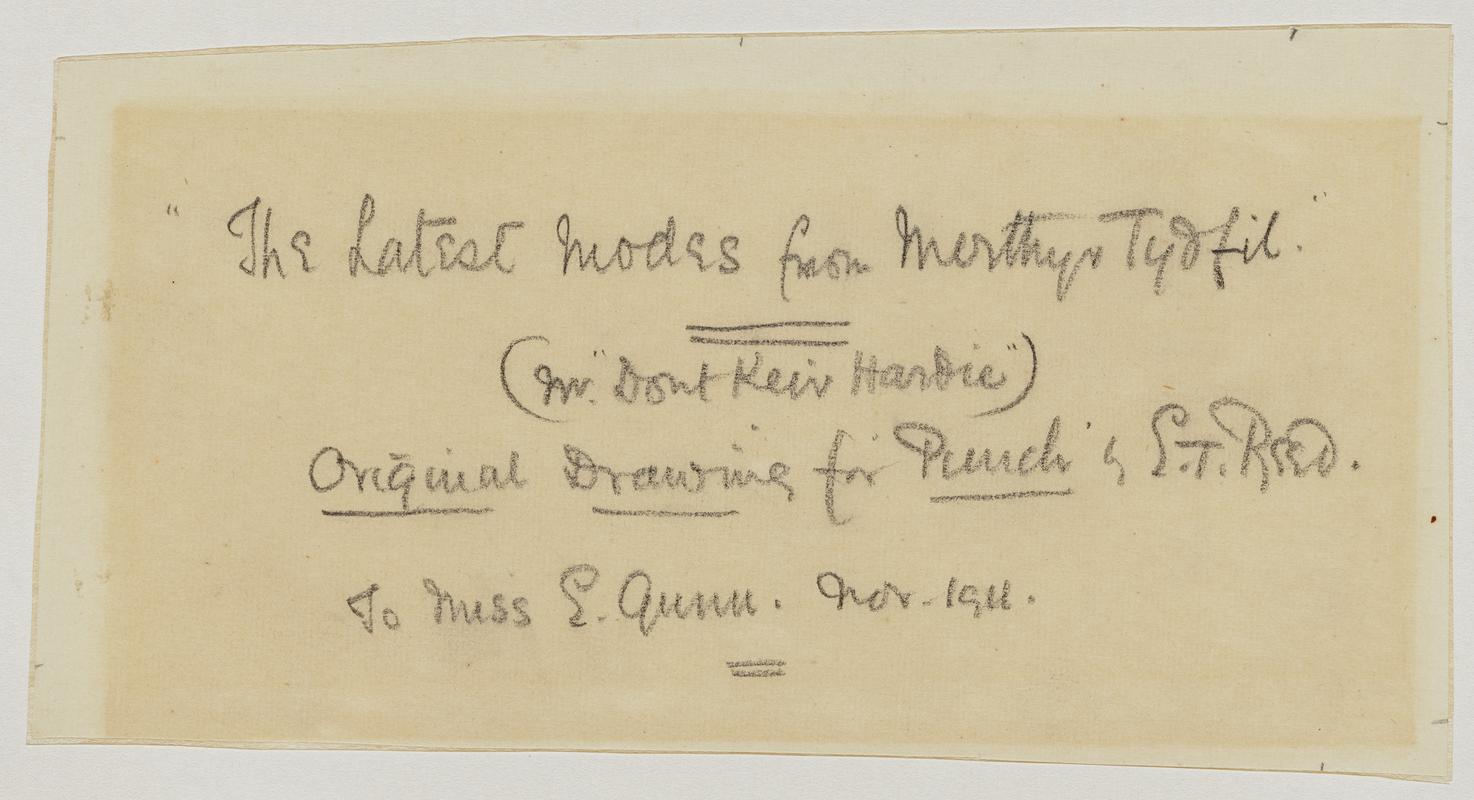 "The Latest Modes from Merthyr Tydfil."
(Mr. "Dont Keir Hardie")
Original Drawing for Punch by E.T. Reed.
To Miss E. Gunn. Nov. 1911.